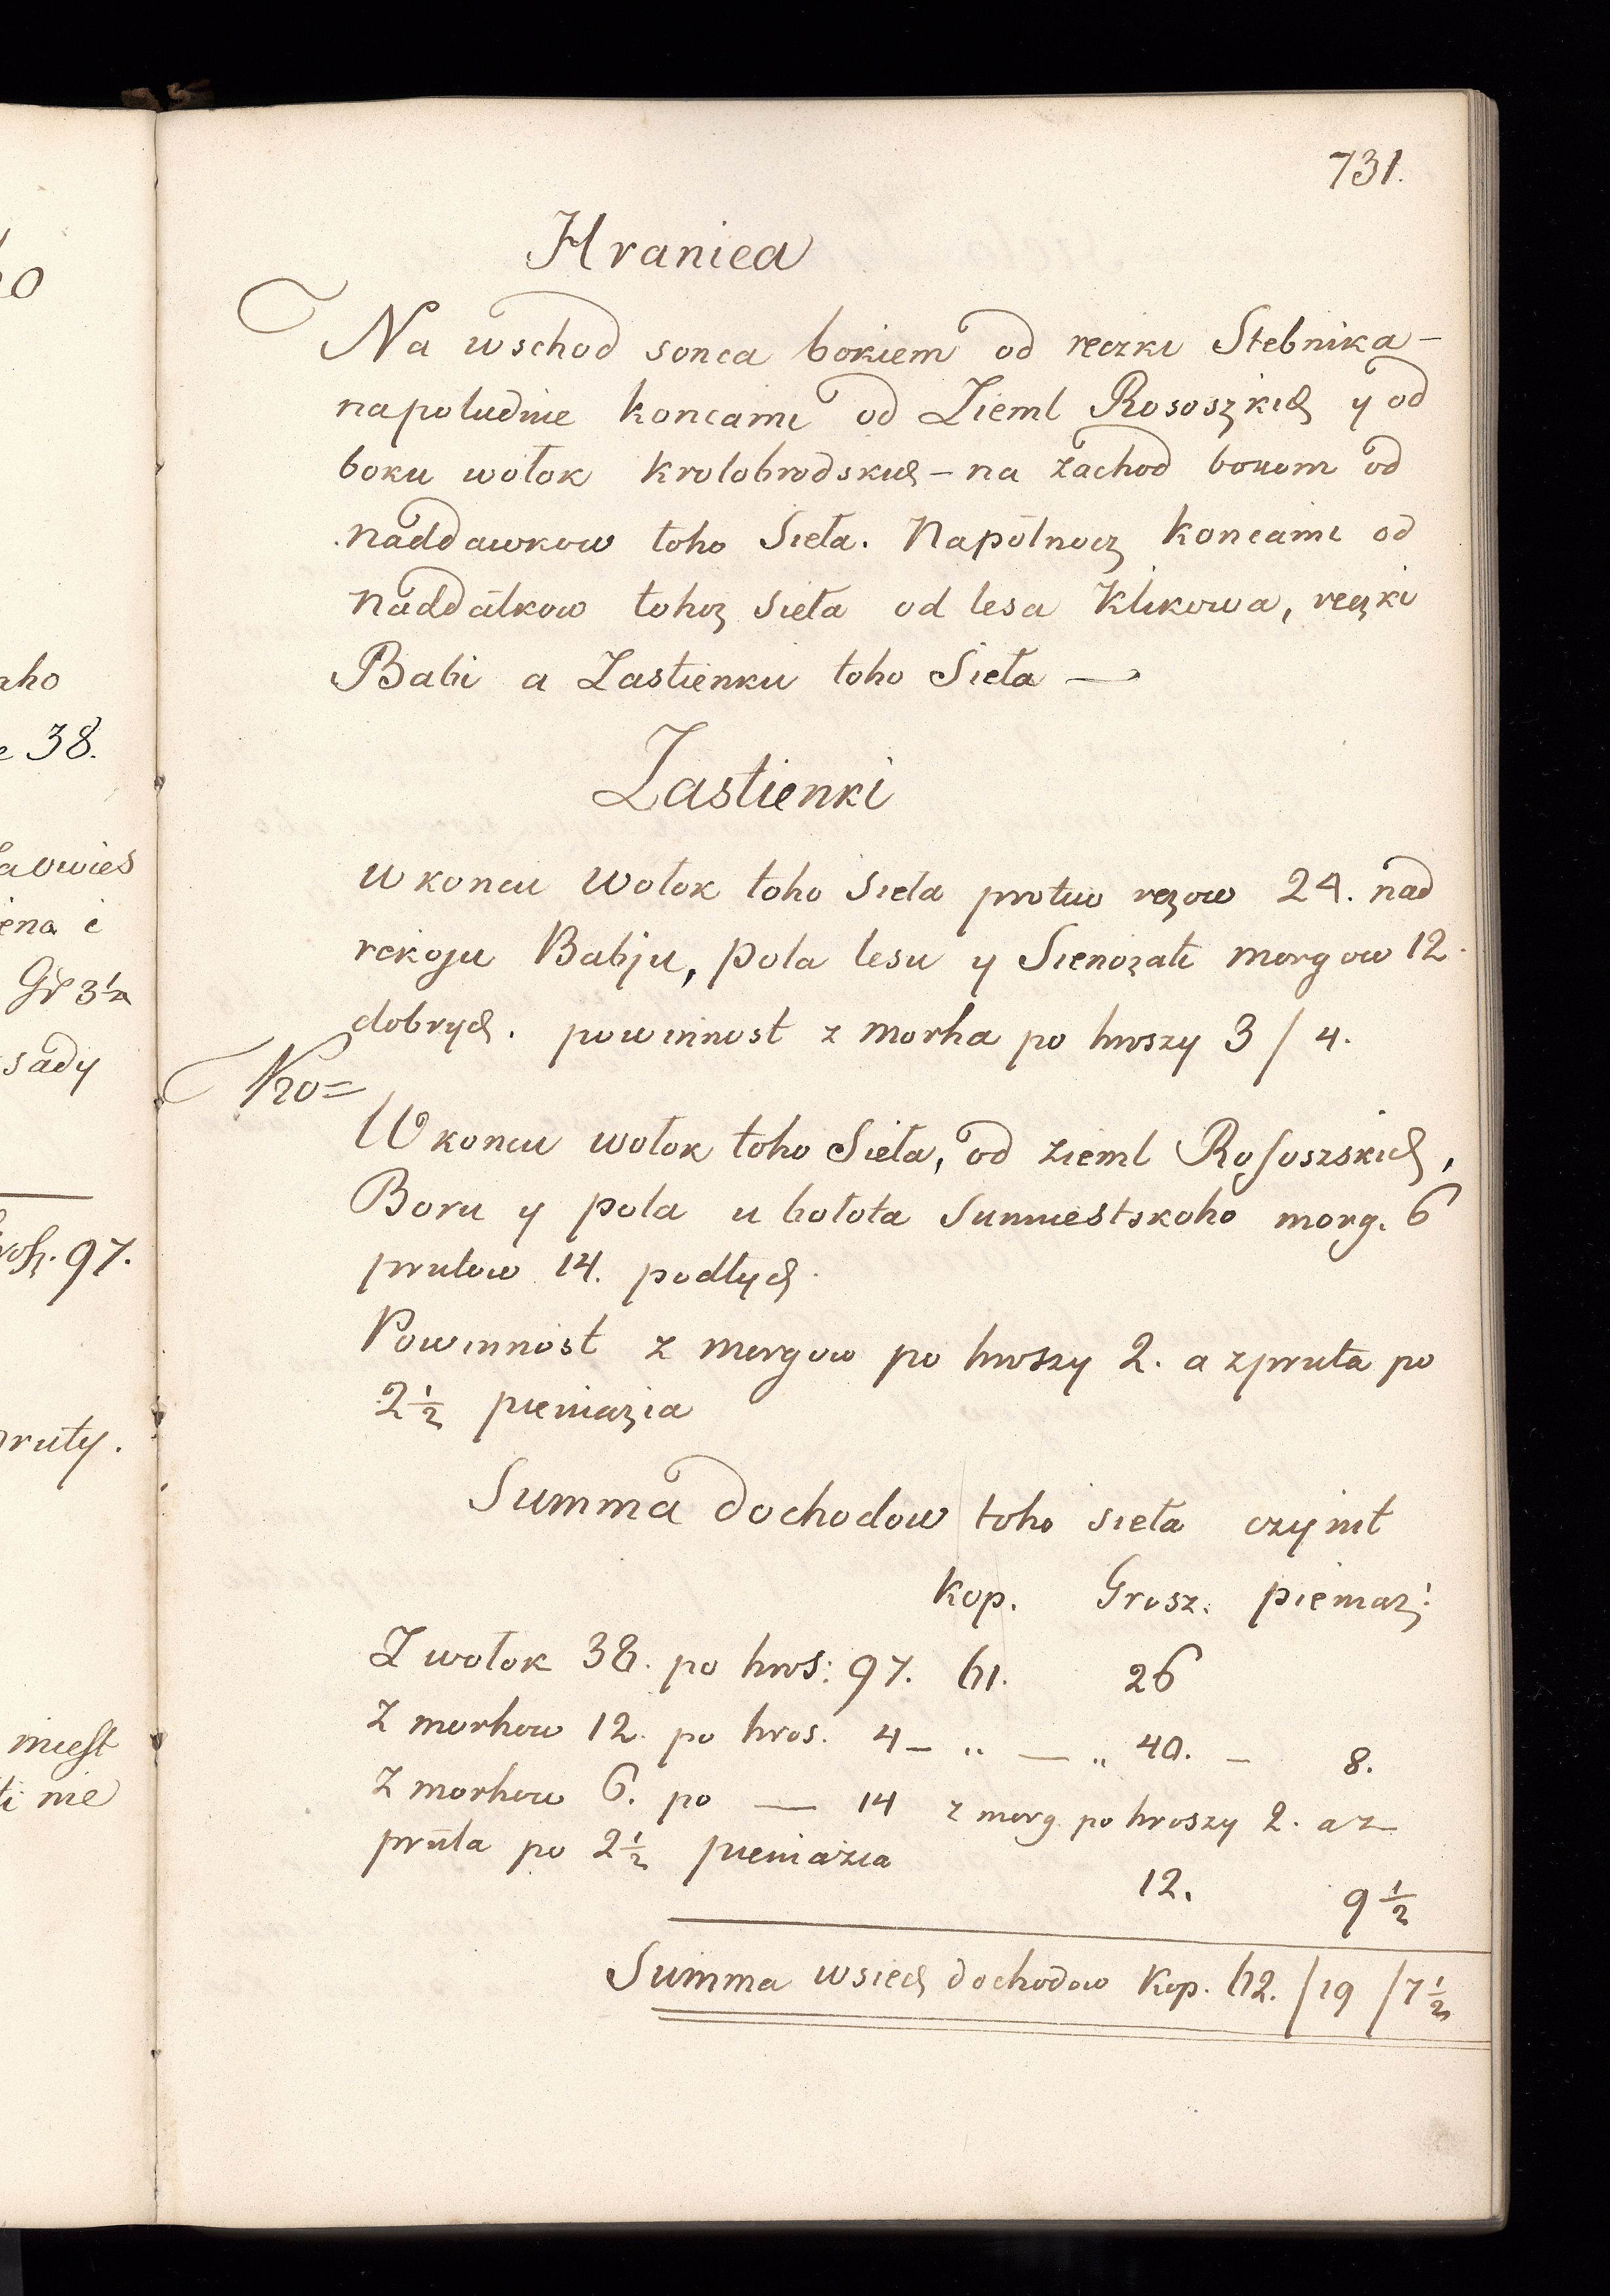 731.
Hranica
Na wschod sonca bokiem od reczki Stebnika –
napoludnie koncami od Zieml Rososzkich y od
boku wołok Krolobrodskich – na zachod bokom od
naddawkow toho Sieła. Napólnocz koncami od
naddałkow tohoz sieła od lesa Klikowa, reczki
Babi a Zastienku toho Sieła —
Zastienki
W koncu Wołok toho Sieła protiw rezow 24. nad
rekoju Babju, pola lesu y Sienozati morgow 12.
dobrych. powinnost z morha po hroszy 3 / 4.
No=
W koncu wołok toho Sieła, od zieml Rososzskich,
Boru y pola u bołota Sumiestskoho morg. 6
prutow 14. podłych.
Powinnost z morgow po hroszy 2. a z pruta po
2 1/2 pieniazia
Summa dochodow toho sieła czynit
Kop. Grosz. pieniaz:
Z wołok 38. po hros: 97. 61. 26
Z morhow 12. po hros. 4 – „ — „ 40. – 8.
Z morhow 6. po — 14 z morg po hroszy 2. a z
pruta po 2 1/2 pieniazia
12. 9 1/2
Summa wsiech dochodow Kop. 62. / 19 / 7 1/2
aho
e 38.
ena i
Gr 3 1/2
sady
97.
pruty.
miest
nie